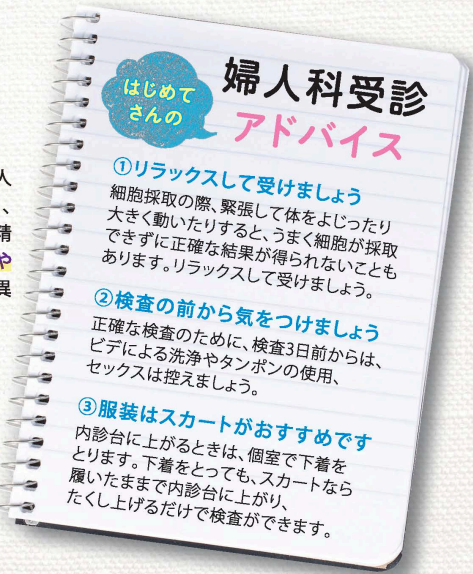 はじめて
さんの
婦人科受診
アドバイス
①リラックスして受けましょう
細胞採取の際、緊張して体をよじったり
大きく動いたりすると、うまく細胞が採取
できずに正確な結果が得られないことも
あります。リラックスして受けましょう。
②検査の前から気をつけましょう
正確な検査のために、検査3日前からは、
ビデによる洗浄やタンポンの使用、
セックスは控えましょう。
③服装はスカートがおすすめです
内診台に上がるときは、個室で下着を
とります。下着をとっても、スカートなら
履いたままで内診台に上がり、
たくし上げるだけで検査ができます。
人
、
精
や
異